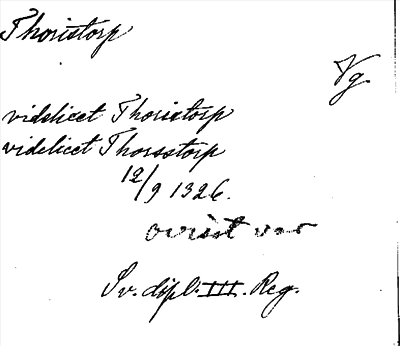 Thoristorp
Vg.
videlicet Thorixtorp
videlicet Thorsstorp
12/9 1326.
ovisst var
Sv. dipl. III. Reg.